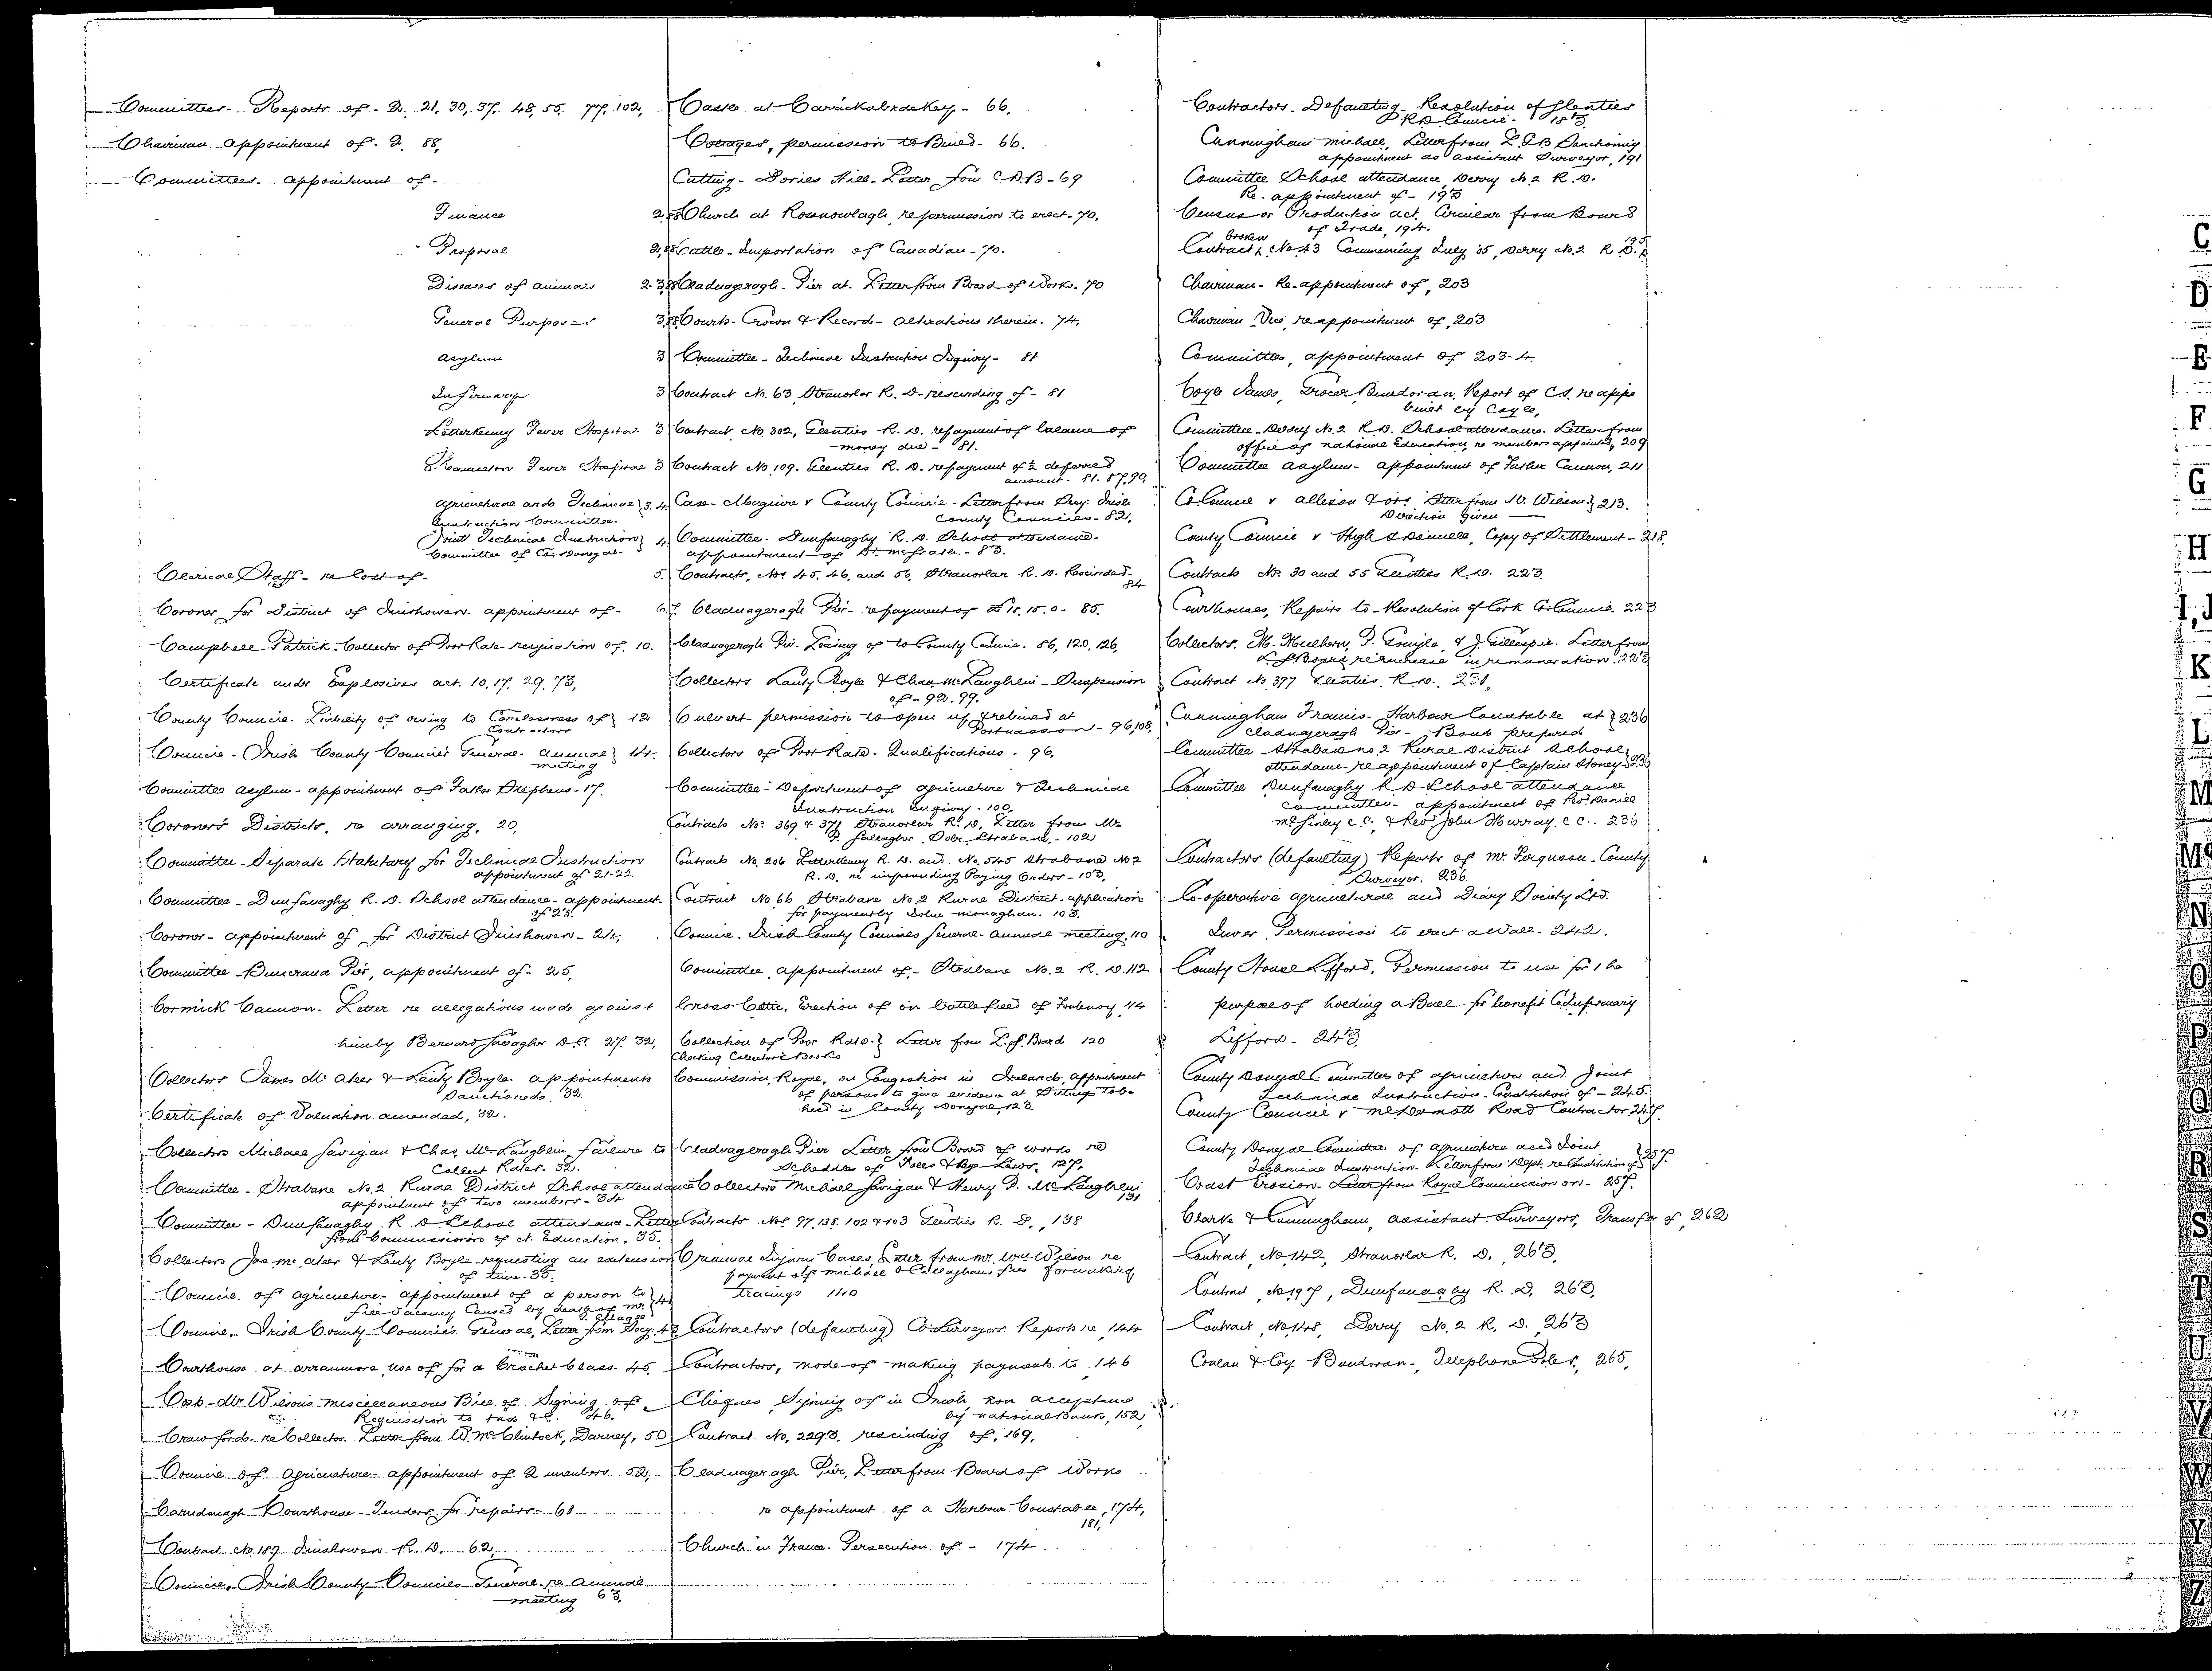 Committees - Reports of - 2. 21, 30, 37. 48, 55. 77. 102,
Chairman appointment of. 2. 88,
Committees - appointment of -
Finance 2,88
Proposal 2,88
Diseases of animals 2.3,88
General Purposes 3,88
Asylum 3
Infirmary 3
Letterkenny Fever Hospital 3
Ramelton Fever Hospital 3
Agricultural and Technical } 3.4.
Instruction Committee
Joint Technical Instruction } 4
Committee of Co. Donegal -
Clerical Staff - re Cost of - 5.
Coroner for District of Inishowen. appointment of - 6.7.
Campbell Patrick. Collector of Poor Rate - resignation of. 10.
Certificate under Explosives act. 10, 17. 29. 73,
County Council. Liability of owing to Carelessness of } 12
Contractors
Council - Irish County Councils General - annual } 14.
meeting
Committee Asylum - appointment of Father Stephens - 17.
Coroner's Districts, re arranging, 20,
Committee - Separate Statutary for Technical Instruction
appointment of 21-22
Committee - Dunfanaghy R. D. School attendance - appointment
of 23.
Coroner - appointment of for District Inishowen - 24,
Committee - Buncrana Pier, appointment of - 25,
Cormick Cannon. Letter re allegations made against
him by Bernard Gallagher D.C. 27. 32,
Collectors James McAteer & Lanty Boyle. appointments
Sanctioned, 32.
Certificate of Valuation amended, 32.
Collectors Michael Gavigan & Chas. McLaughlin, failure to
Collect Rates. 32.
Committee - Strabane No. 2 Rural District School attendance
appointment of two members - 34
Committee - Dunfanaghy. R. D School attendance - Letter
from Commissioners of Nt. Education. 35.
Collectors Jas McAteer & Lanty Boyle - requesting an extension
of time. 35.
Council of agriculture - appointment of a person to } 41
fill vacancy Caused by death of Mr
Council. Irish County Councils General, Letter from Secy. 43
Courthouse at arranmore, use of for a Crochet Class. 45.
Cost - Mr Wilson's miscellaneous Bill of Signing of
Requisition to tax &c. 46.
Crawford - re Collector. Letter from W. McClintock, Darney, 50
Council of Agriculture - appointment of 2 members. 52,
Carndonagh Courthouse - Tenders for repairs - 61
Contract No 189 Inishowen R. D. 62,
Council - Irish County Councils General - re Annual
meeting 63,
Casks at Carrickabrackey - 66.
Cottages, permission to Build - 66.
Cutting - Dories Hill - Letter from C.D.B - 69
Church at Rossnowlagh, re permission to erect - 70.
Cattle - Importation of Canadian - 70.
Cladnageragh - Pier at. Letter from Board of Works. 70
Courts - Crown & Record - alterations therein. 74,
Committee - Technical Instruction Inquiry - 81
Contract No. 63, Stranorlar R. D - rescinding of - 81
Contract No. 302, Glenties R. D. repayment of balance of
money due - 81.
Contract No. 109. Glenties R. D. repayment of ½ deferred
amount. 81. 87, 90,
Case - Maguire v County Council - Letter from Secy. Irish
County Councils - 82,
Committee - Dunfanaghy R. D. School attendance -
appointment of - 83.
Contracts, Nos 45, 46, and 56, Stranorlar R. D. Rescinded -
84
Cladnageragh Pier - repayment of £ 15. 0 - 85.
Cladnageragh Pier. Leasing of to County Council. 86, 120, 126,
Collectors Lanty Boyle & Chas. McLaughlin - Suspension
of - 92, 99.
Culvert permission to open up & rebuild at
Portnasson - 96, 108,
Collectors of Poor Rate - Qualifications. 96.
Committee - Department of Agriculture & Technical
Instruction Inquiry - 100,
Contracts Nos. 369 & 371 Stranorlar R. D, Letter from Mr
Gallagher, Solr. Strabane, - 102
Contracts No. 206 Letterkenny R. D. and No. 545 Strabane No 2
R. D, re impounding Paying Orders - 103,
Contract No 66 Strabane No. 2 Rural District - application
for payment by John Monaghan. 103.
Council. Irish County Councils General - Annual meeting. 110
Committee, appointment of - Strabane No. 2 R. D. 112
Cross. Celtic, Erection of on battlefield of Fontenoy. 114
Collection of Poor Rate } Letter from L. G. Board 120
Checking Collector's Books
Commission, Royal, on Congestion in Ireland. appointment
of persons to give evidence at Sittings to be
held in County Donegal, 123.
Cladnageragh Pier Letter from Board of Works re
Schedule of Tolls & Bye Laws, 127.
Collectors Michael Gavigan & Henry P. McLaughlin
131
Contracts Nos. 97, 138. 102 & 103 Glenties R. D. 138
Criminal Injury Cases, Letter from Mr. Wm Wilson re
payment of Michael O'Callaghan's fees for making
tracings 140
Contractors (defaulting) Co. Surveyors Report re 144
Contractors, mode of making payments to 146
Cheques, Signing of in Irish, non acceptance
by National Bank, 152
Contract No, 2293, rescinding of, 169,
Cladnageragh Pier, Letter from Board of Works
re appointment of a Harbour Constable, 174,
181,
Church in France. Persecution of - 174
Contractors - Defaulting - Resolution of Glenties
R D Council. 183.
Cunningham Michael, Letter from L. G. B Sanctioning
appointment as Assistant Surveyor, 191
Committee School attendance Derry No. 2 R. D.
Re. appointment of - 193
Census or Production act. Circular from Board
of Trade, 194.
Contract broken, No 43 Commencing July '05, Derry No. 2 R D. 195
Chairman - Re-appointment of, 203
Chairman Vice, reappointment of, 203
Committees, appointment of 203-4.
Coyle James, Grocer, Bundoran, Report of C.S. re a pipe
built by Coyle,
Committee - Derry No. 2 R. D. School attendance. Letter from
office of national Education, re members appointed, 209
Committee Asylum - appointment of Father Cannon, 211
Co. Council v Allison & ors. Letter from W. Wilson. } 213.
Direction given
County Council v Hugh O'Donnell, Copy of Settlement - 218.
Contracts Nos. 30 and 55 Glenties R. D. 223.
Courthouses, Repairs to - Resolution of Cork Co. Council. 223
Collectors. M. Mulhern, P. & J. Gillespie. Letter from
L G Board re increase in remuneration. 223
Contract No. 397 Glenties. R. D. 231,
Cunningham Francis - Harbour Constable at } 236
Cladnageragh Pier - Bond prepared
Committee - Strabane No 2 Rural District School
attendance - reappointment of Captain Stoney 236
Committee Dunfanaghy R D School attendance
Committee - appointment of Revd Daniel
McGinley C.C. & Revd John Murray. C C. . 236
Contractors (defaulting) Reports of Mr. Ferguson - County
Surveyor. 236.
Co-operative Agricultural and Diary Society Ltd.
Inver Permission to erect a wall. 242.
County House Lifford. Permission to use for the
purpose of holding a Ball for benefit Co. Infirmary
Lifford - 243.
County Donegal Committee of Agriculture and Joint
Technical Instruction. Constitution of - 245.
County Council v McDermott Road Contractor 247.
County Donegal Committee of Agriculture and Joint
Technical Instruction. Letter from Dept. re Constitution of } 257.
Coast Erosion - Letter from Royal Commission on - 257.
Clarke & Cunningham, Assistant Surveyors, Transfer of, 262
Contract, No, 142, Stranorlar R. D, 263,
Contract, No 197, Dunfanaghy R. D, 263,
Contract, No, 148, Derry No. 2 R. D. 263
Conlan & Coy. Bundoran -, Telephone Poles, 265,
C
D
E
F
G
H
I, J
K
L
M
Mc
N
O
P
Q
R
S
T
U
V
W
Y
Z